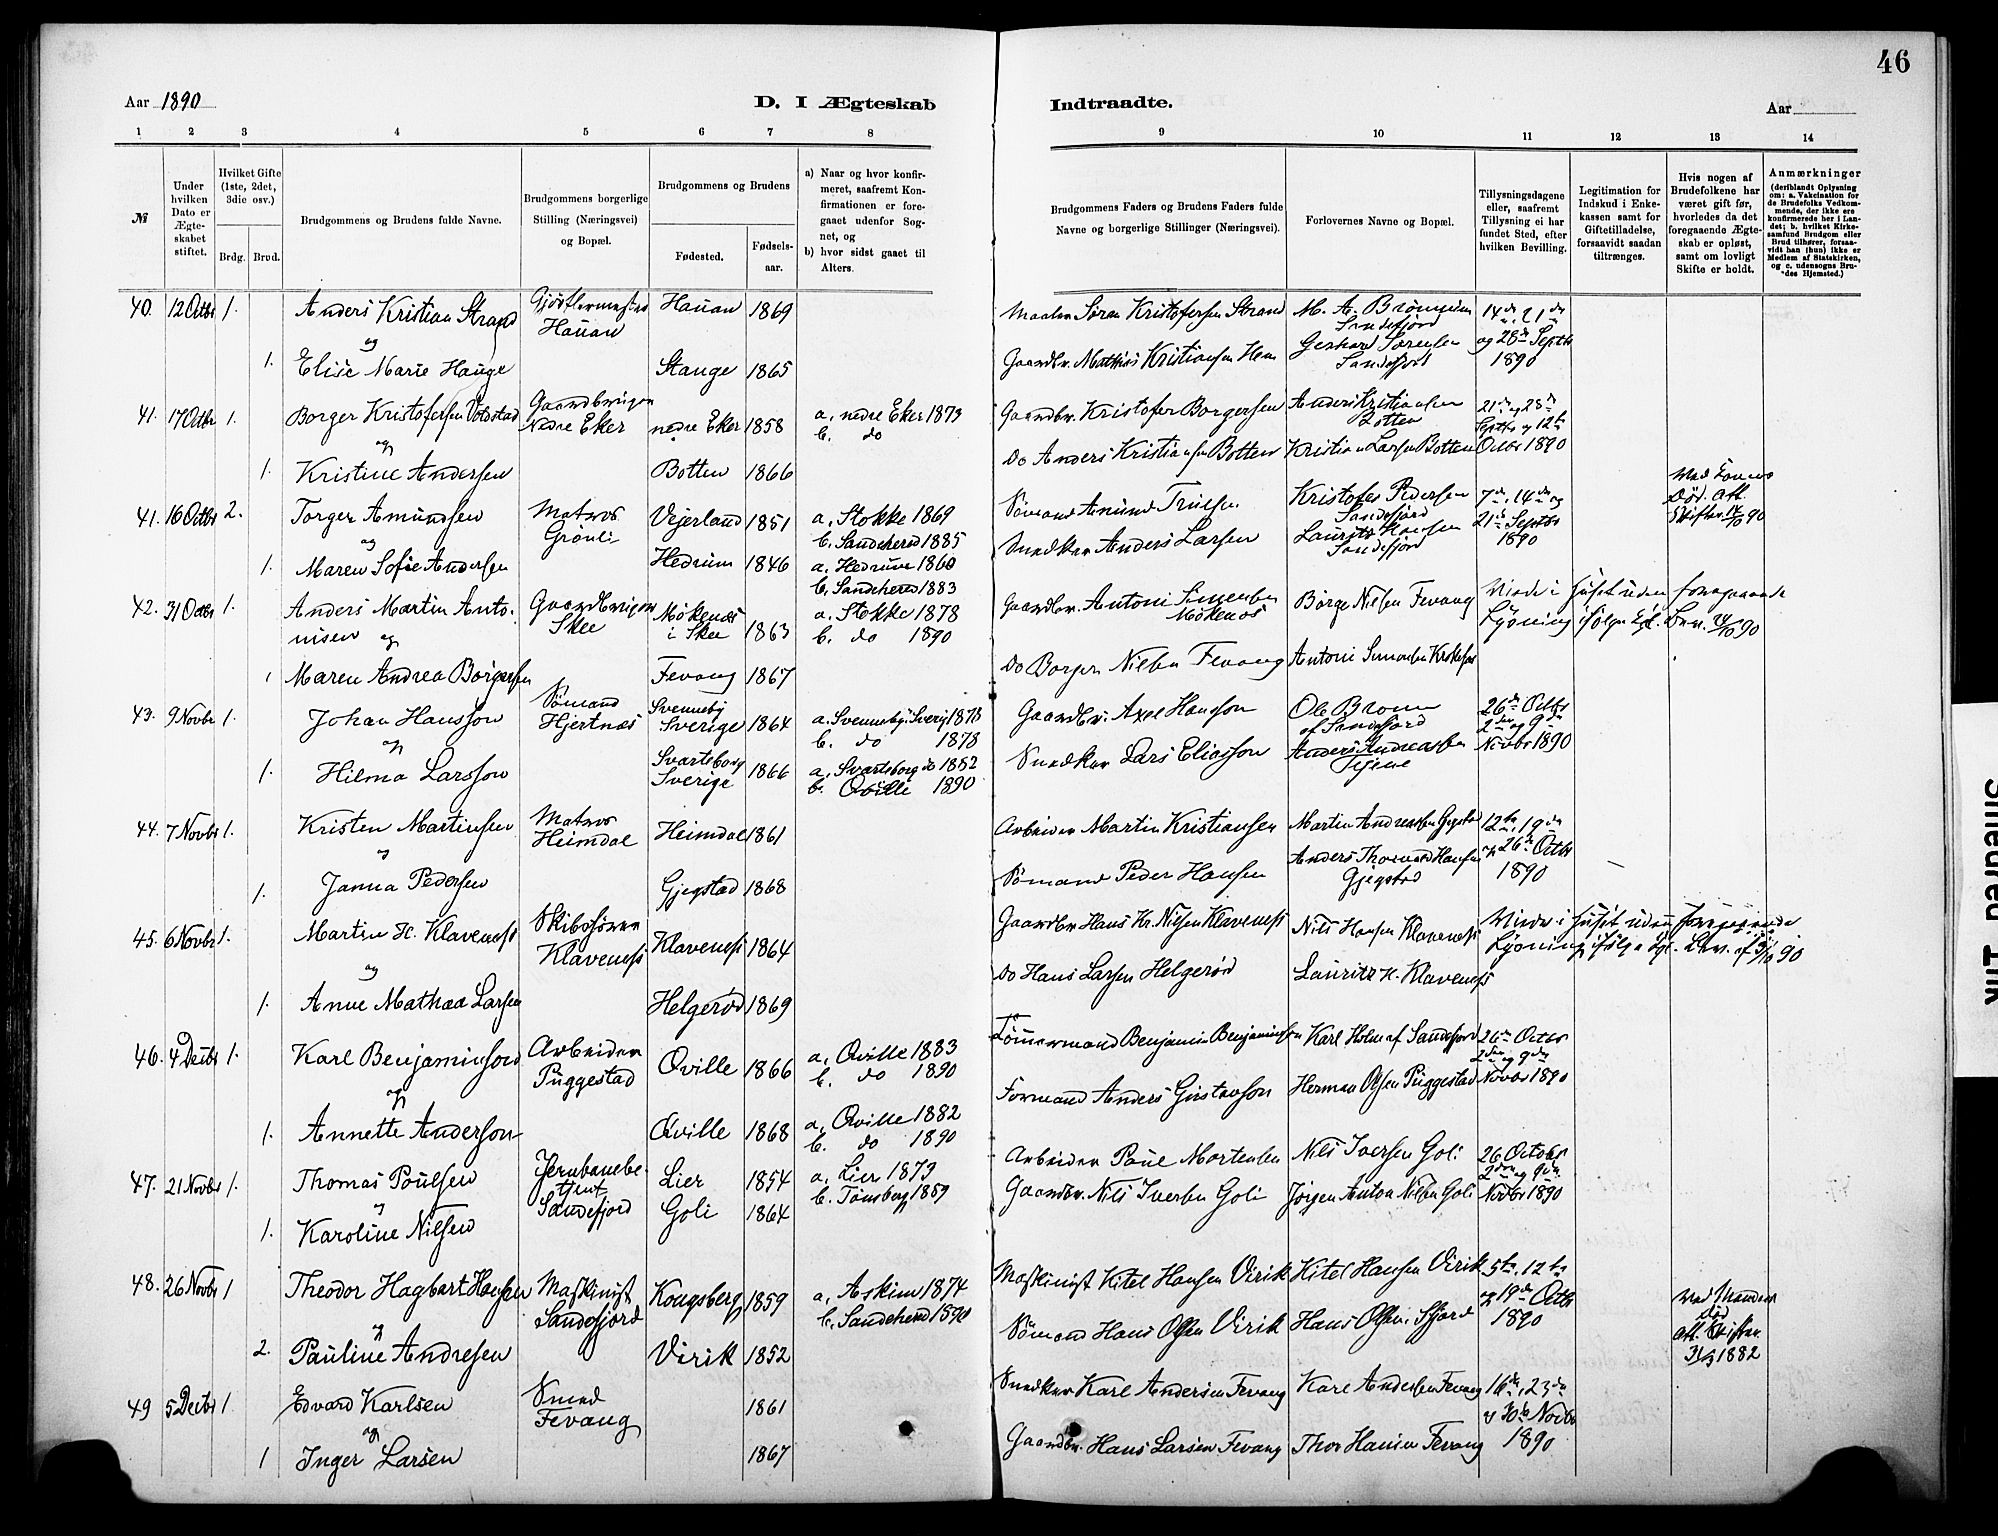 46
Aar 1890
D. I Ægteskab
Indtraadte.
Aar
1 2 3 4 5 6 7 8 9 10 11 12 13 14
№
Under hvilken Dato er Ægteskabet stiftet.
Hvilket Gifte (1ste, 2det, 3die osv.)
Brdg. Brud.
Brudgommens og Brudens fulde Navne.
Brudgommens borgerlige Stilling (Næringsvei) og Bopæl.
Brudgommens og Brudens
Fødested.
Fødselsaar.
a) Naar og hvor konfirmeret, saafremt Konfirmationen er foregaaet udenfor Sognet, og
b) hvor sidst gaaet til Alters.
Brudgommens Faders og Brudens Faders fulde Navne og borgerlige Stillinger (Næringsvei).
Forlovernes Navne og Bopæl.
Tillysningsdagene eller, saafremt Tillysning ei har fundet Sted, efter hvilken Bevilling.
Legitimation for Indskud i Enkekassen samt for Giftetilladelse, forsaavidt saadan tiltrænges.
Hvis nogen af Brudefolkene har været gift før, hvorledes da det foregaaende Ægteskab er opløst, samt om lovligt Skifte er holdt.
Anmærkninger (deriblandt Oplysning om: a. Vakcination for de Brudefolks Vedkommende, der ikke ere konfirmerede her i Landet; b. hvilket Kirkesamfund Brudgom eller Brud tilhører, forsaavidt han (hun) ikke er Medlem af Statskirken, og c. udensogns Brudes Hjemsted.)
40. 12 Octbr 1. Anders Kristian Strand Hauan Hauan 1869 Maaler Søren Kristofersen Strand Sandefjord 14de, 21de
og Gerhard Sørensen og 28de Septbr
1. Elise Marie Hauge Stange 1865 Gaardbr. Mathias Kristiansen Hem Sandefjord 1890
41. 17 Octbr 1. Borger Kristofersen Gaardbruger Nedre Eker nedre Eker 1858 a. nedre Eker 1873 Gaardbr. Kristofer Borgersen Anders Kristiansen Botten 21de og 28de
og b. do Septbr og 12te
1. Kristine Andersen Botten 1866 Do Anders Kristiansen Botten Kristian Larsen Botten Octbr 1890
41. 16 Octbr 2. Torger Amundsen Matros Grønli Vejerland 1851 a. Stokke 1869 Sømand Amund Trulsen Kristofer Pedersen Sandefjord 7de, 14de og
og b. Sandeherred 1885 21de Septbr
1. Maren Sofie Andersen Hedrum 1846 a. Hedrum 1860 Snedker Anders Larsen Lauritz Hansen Sandefjord 1890
b. Sandeherred 1883
42. 31 Octbr 1. Anders Martin Antonisen og Gaardbruger Skee i Skee 1863 a. Stokke 1878 Gaardbr. Antoni Simensen Børge Nielsen Fevang Viede i Huset uden foregaaende
b. do 1890 Lysning ifølge
Maren Andrea Borgersen Fevang 1867 Do Borger Nielsen Fevang Antoni Simensen
43. 9 Novbr 1. Johan Hansson Sømand Hjertnæs Svenneby Sverige 1864 a. Svenneby i Sverig 1878 Gaardbr. Axel Hansson af Sandefjord 26de Octbr
og b. do 1878 2den og 9de
1. Hilma Larsson Svarteborg Sverige 1866 a. Svarteborg do 1882 Snedker Lars Eliasson Anders Andreassen Novbr 1890
b. Qville 1890
44. 7 Novbr 1. Kristen Martinsen Matros Heimdal Heimdal 1861 Arbeider Martin Kristiansen Martin Andreassen Gjegstad 12te, 19de
og og 26de Octbr
1. Janna Pedersen Gjegstad 1868 Sømand Peder Hansen Anders Thorvald Hansen Gjegstad 1890
45. 6 Novbr 1. Martin H. Klaveness Skibsfører Klaveness Klaveness 1864 Gaardbr. Hans Kr. Nielsen Klaveness Nils Hansen Klaveness Viede i Huset uden foregaaende
og Lysning ifølge
1. Anne Mathea Larsen Helgerød 1869 Do Hans Larsen Helgerød Lauritz H. Klaveness
46. 4 Decbr 1. Karl Benjaminson Arbeider Puggestad Qville 1866 a. Qville 1883 Tømmermand Benjamin Benjaminson Karl Holm af Sandefjord 26de Octbr
og b. do 1890 2den og 9de
1. Annette Anderson Qville 1868 a. Qville 1882 Formand Anders Gustavson Herman Olsen Puggestad Novbr 1890
b. do 1890
47. 21 Novbr 1. Thomas Poulsen Jernbanebetjent Sandefjord Lier 1854 a. Lier 1873 Arbeider Paul Mortensen Nils Iversen Goli 26 October
og b. Tønsberg 1889 2den og 9de
1. Karoline Nilsen Goli 1864 Gaardbr. Nils Iversen Goli Jørgen Anton Nilsen Goli Novbr 1890
48. 26 Novbr 1 Theodor Hagbart Hansen Maskinist Sandefjord Kongsberg 1859 a. Askim 1874 Maskinist Kitel Hansen Virik Kitel Hansen Virik 5te, 12te
og b. Sandeherred 1890 og 19de Octbr
2. Pauline Andresen Virik 1852 Sømand Hans Olsen Virik Hans Olsen 1890 Ved Mandens Død
1882
49 5 Decbr 1. Edvard Karlsen Smed Fevang 1861 Snedker Karl Andersen Fevang Karl Andersen Fevang 16de, 23de
og 30te Novbr
1 Inger Larsen 1867 Gaardbr. Hans Larsen Fevang Thor Hansen Fevang 1890